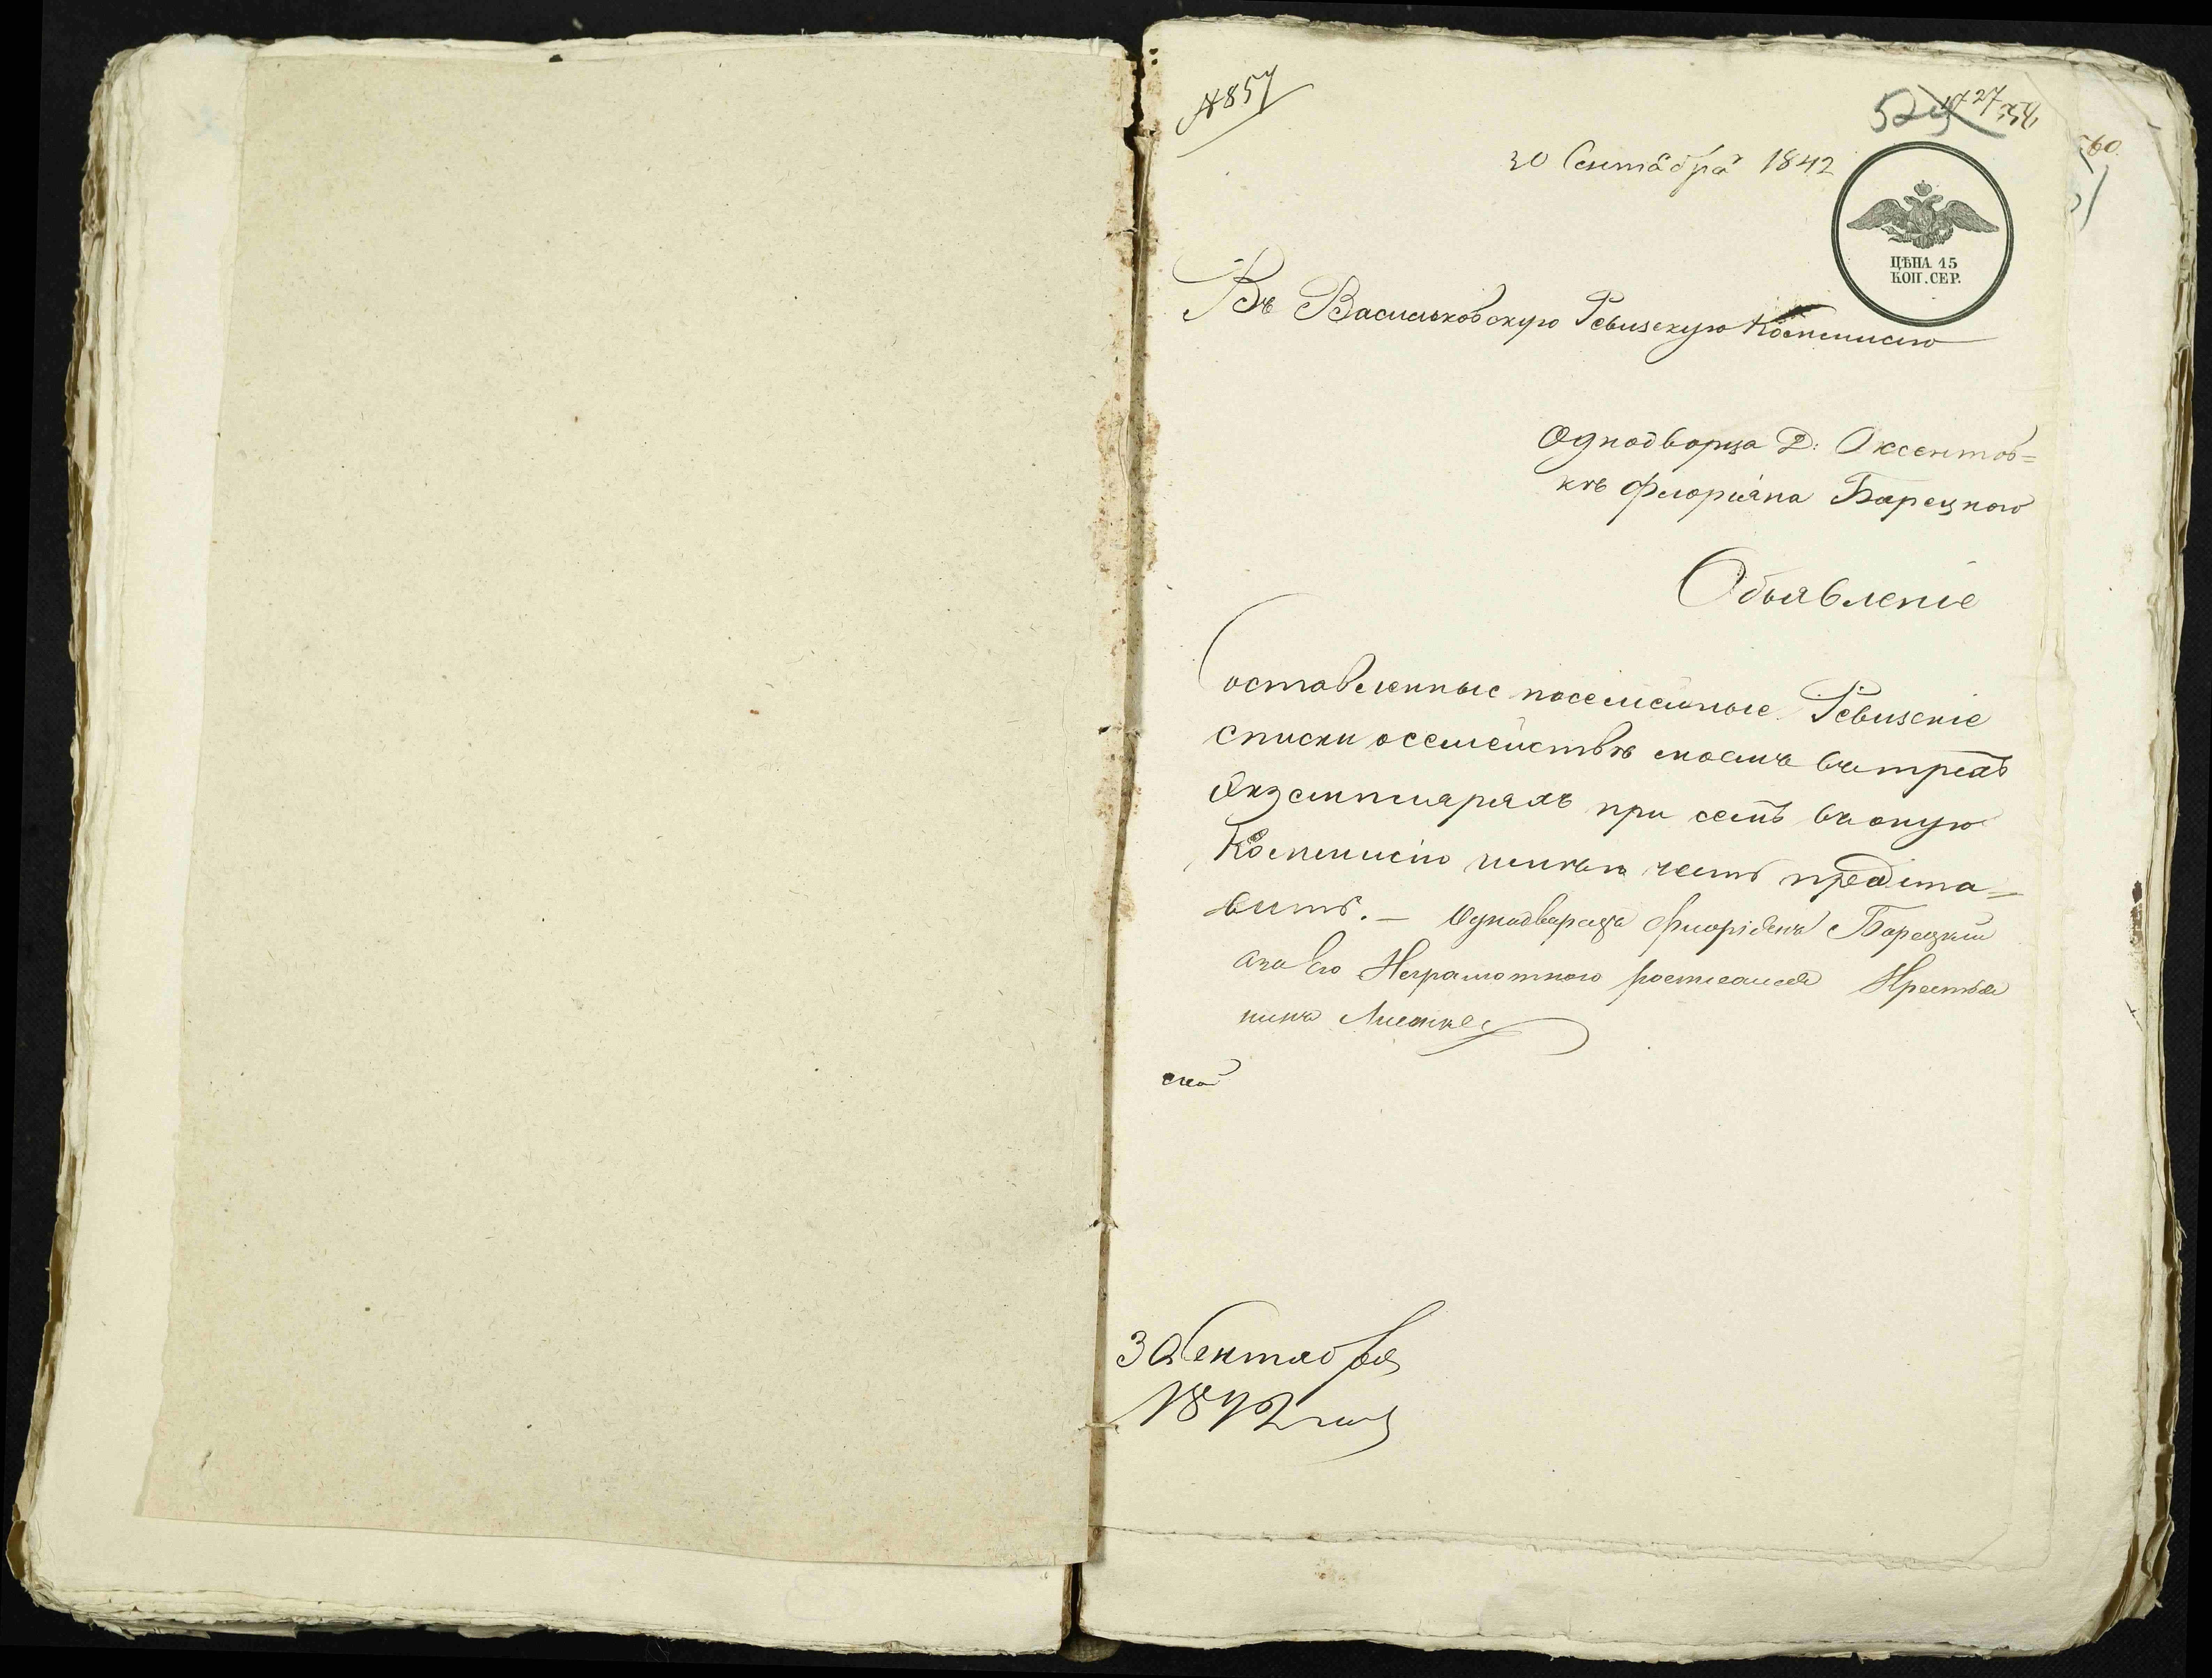 №857
727 758
30 Сентября 1842
760
ЦѢНА 15
КОП. СЕР.
Въ Васильковскую Ревизскую Коммисию
Однодворца Д: Оксентов=
кѣ Флоріяна Барецкого
Объявленіе
Составленные посемейные Ревизскіе
списки осемействѣ моемъ вътрехъ
Экземплярахъ при семъ въоную
Коммисію имѣю честь предста=
вить. — Однодворецъ Флоріянъ Барецкій
азаего Неграмотного росписался Крестья
нинъ
30 Сентября
1842 года